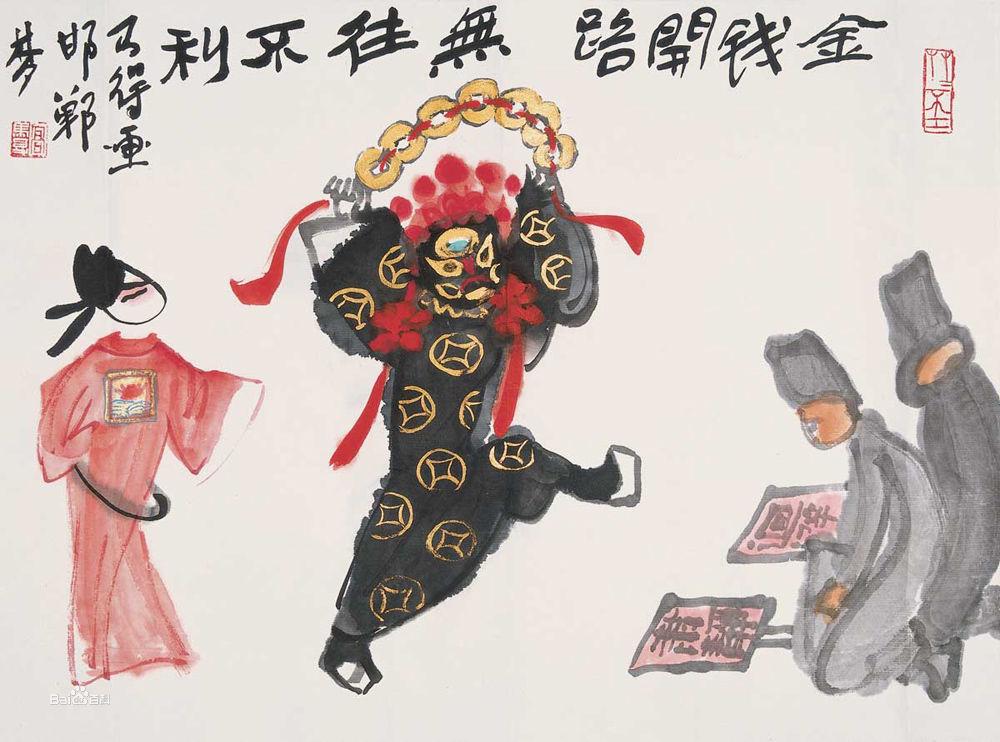 金钱開路 無往不利
马得画
邯郸
梦
迴避
肅靜
Bai百科